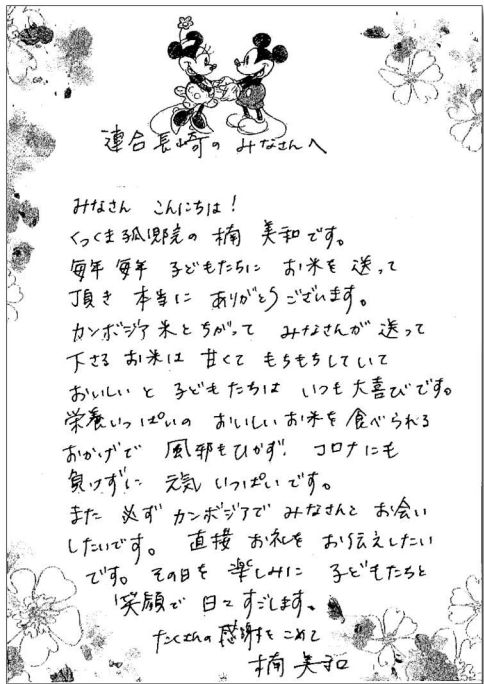 連合長崎のみなさんへ
みなさん こんにちは!
くっくま孤児院の 楠 美和です。
毎年 毎年 子どもたちに お米を 送って
頂き 本当に ありがとうございます。
カンボジア米とちがって みなさんが 送って
下さる お米は 甘くて もちもちしていて
おいしいと 子どもたちは いつも大喜びです。
栄養いっぱいの おいしいお米を 食べられる
おかげで 風邪もひかず、コロナにも
負けずに 元気 いっぱいです。
また 必ず カンボジアで みなさんと お会い
したいです。 直接 お礼を お伝えしたい
です。その日を 楽しみに 子どもたちと
笑顔で 日々 すごします。
たくさんの感謝をこめて
楠 美和